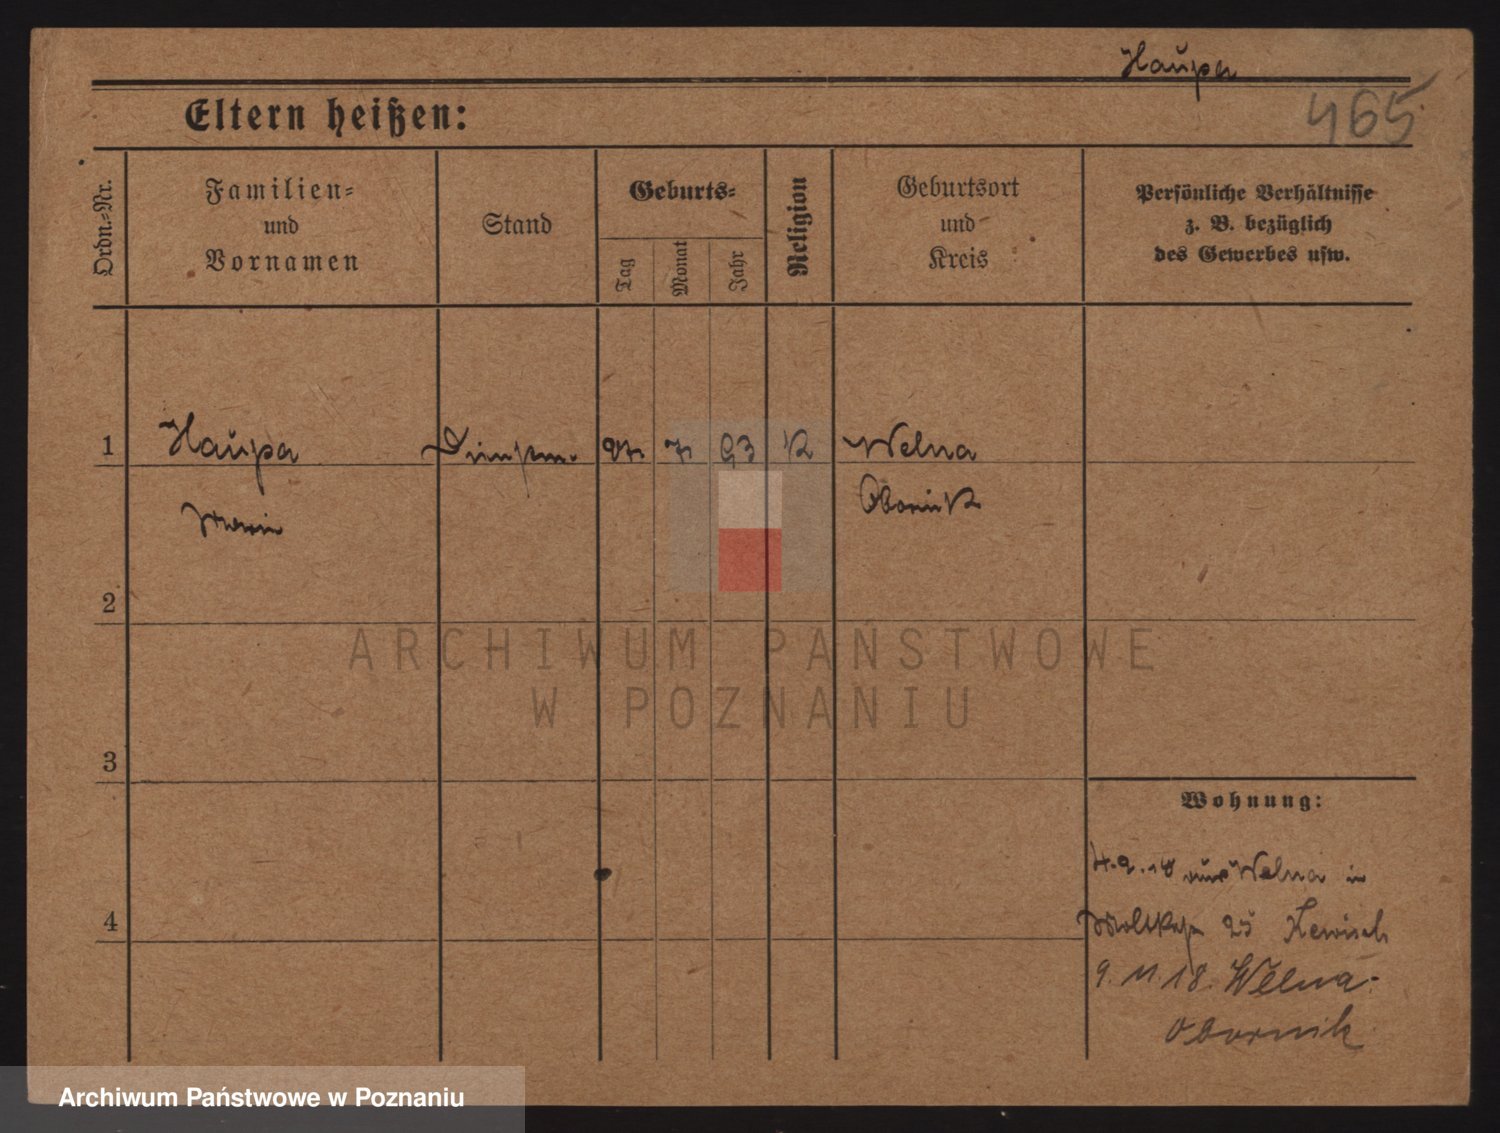 Haupa
465
Eltern heißen:
Ordn.-Nr.
Familien-
und
Vornamen
Stand
Geburts-
Tag
Monat
Jahr
Religion
Geburtsort
und
Kreis
Persönliche Verhältnisse
z. B. bezüglich
des Gewerbes usw.
1 Haupa 7 93 K Welna
Obornik
2
3
4
ARCHIWUM PAŃSTWOWE
W POZNANIU
Wohnung:
4.9.18 aus Welna in
25
9.11.18. Welna-
Obornik
Archiwum Państwowe w Poznaniu